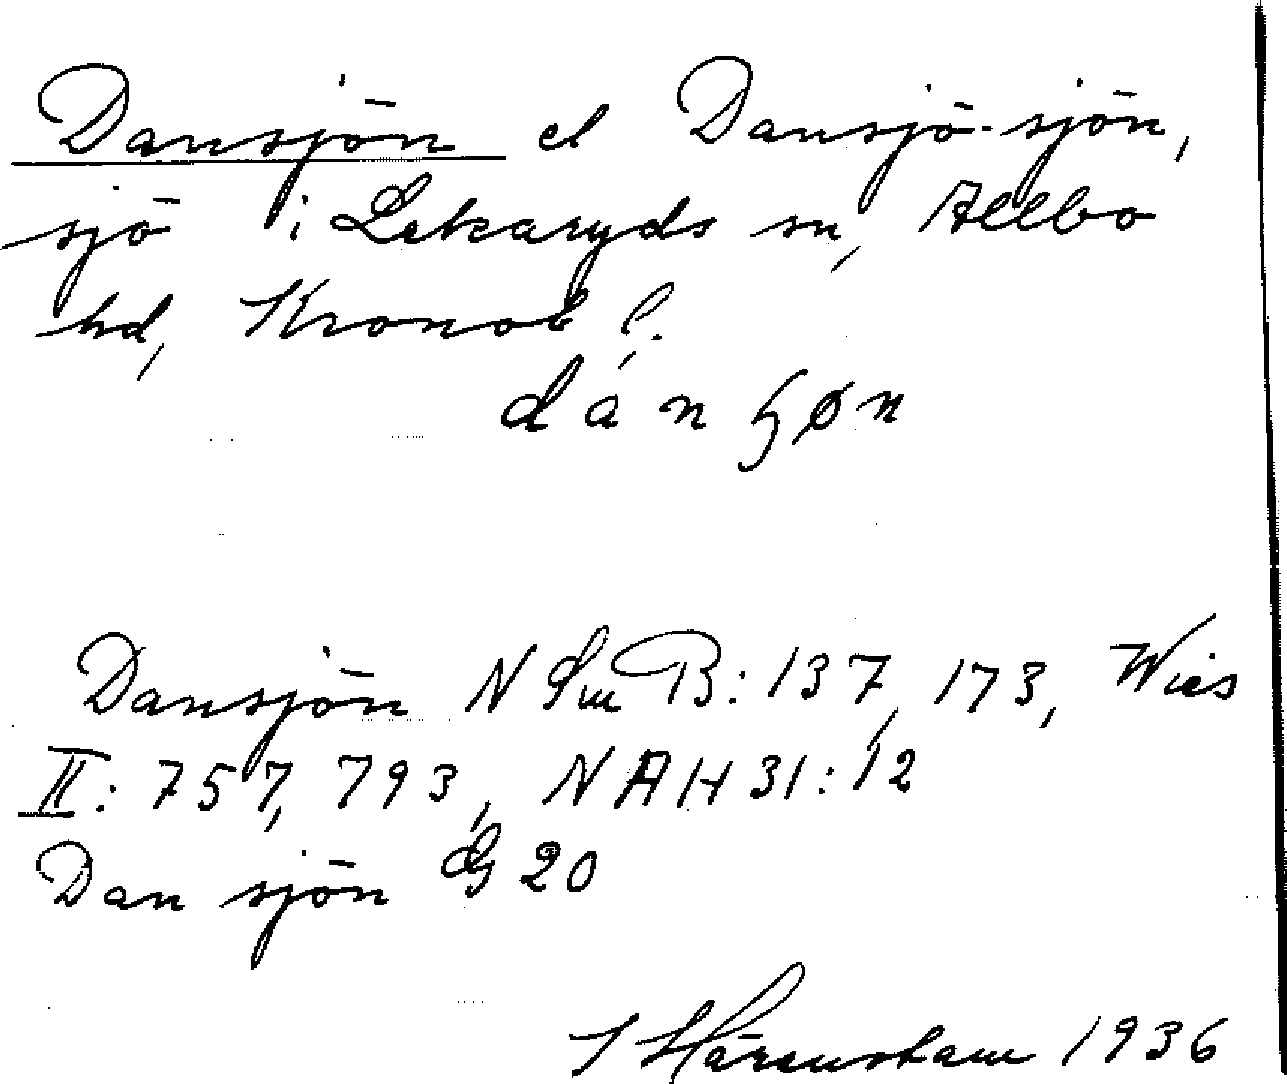 Dansjön el Dansjö-sjön,
sjö i Lekaryds sn, Allbo
hd, Kronob l.
dánɧøn
Dansjön N Sm B: 137, 173, Wies
II: 757, 793, NAH 31:12
Dan sjön G 20
Härenstam 1936